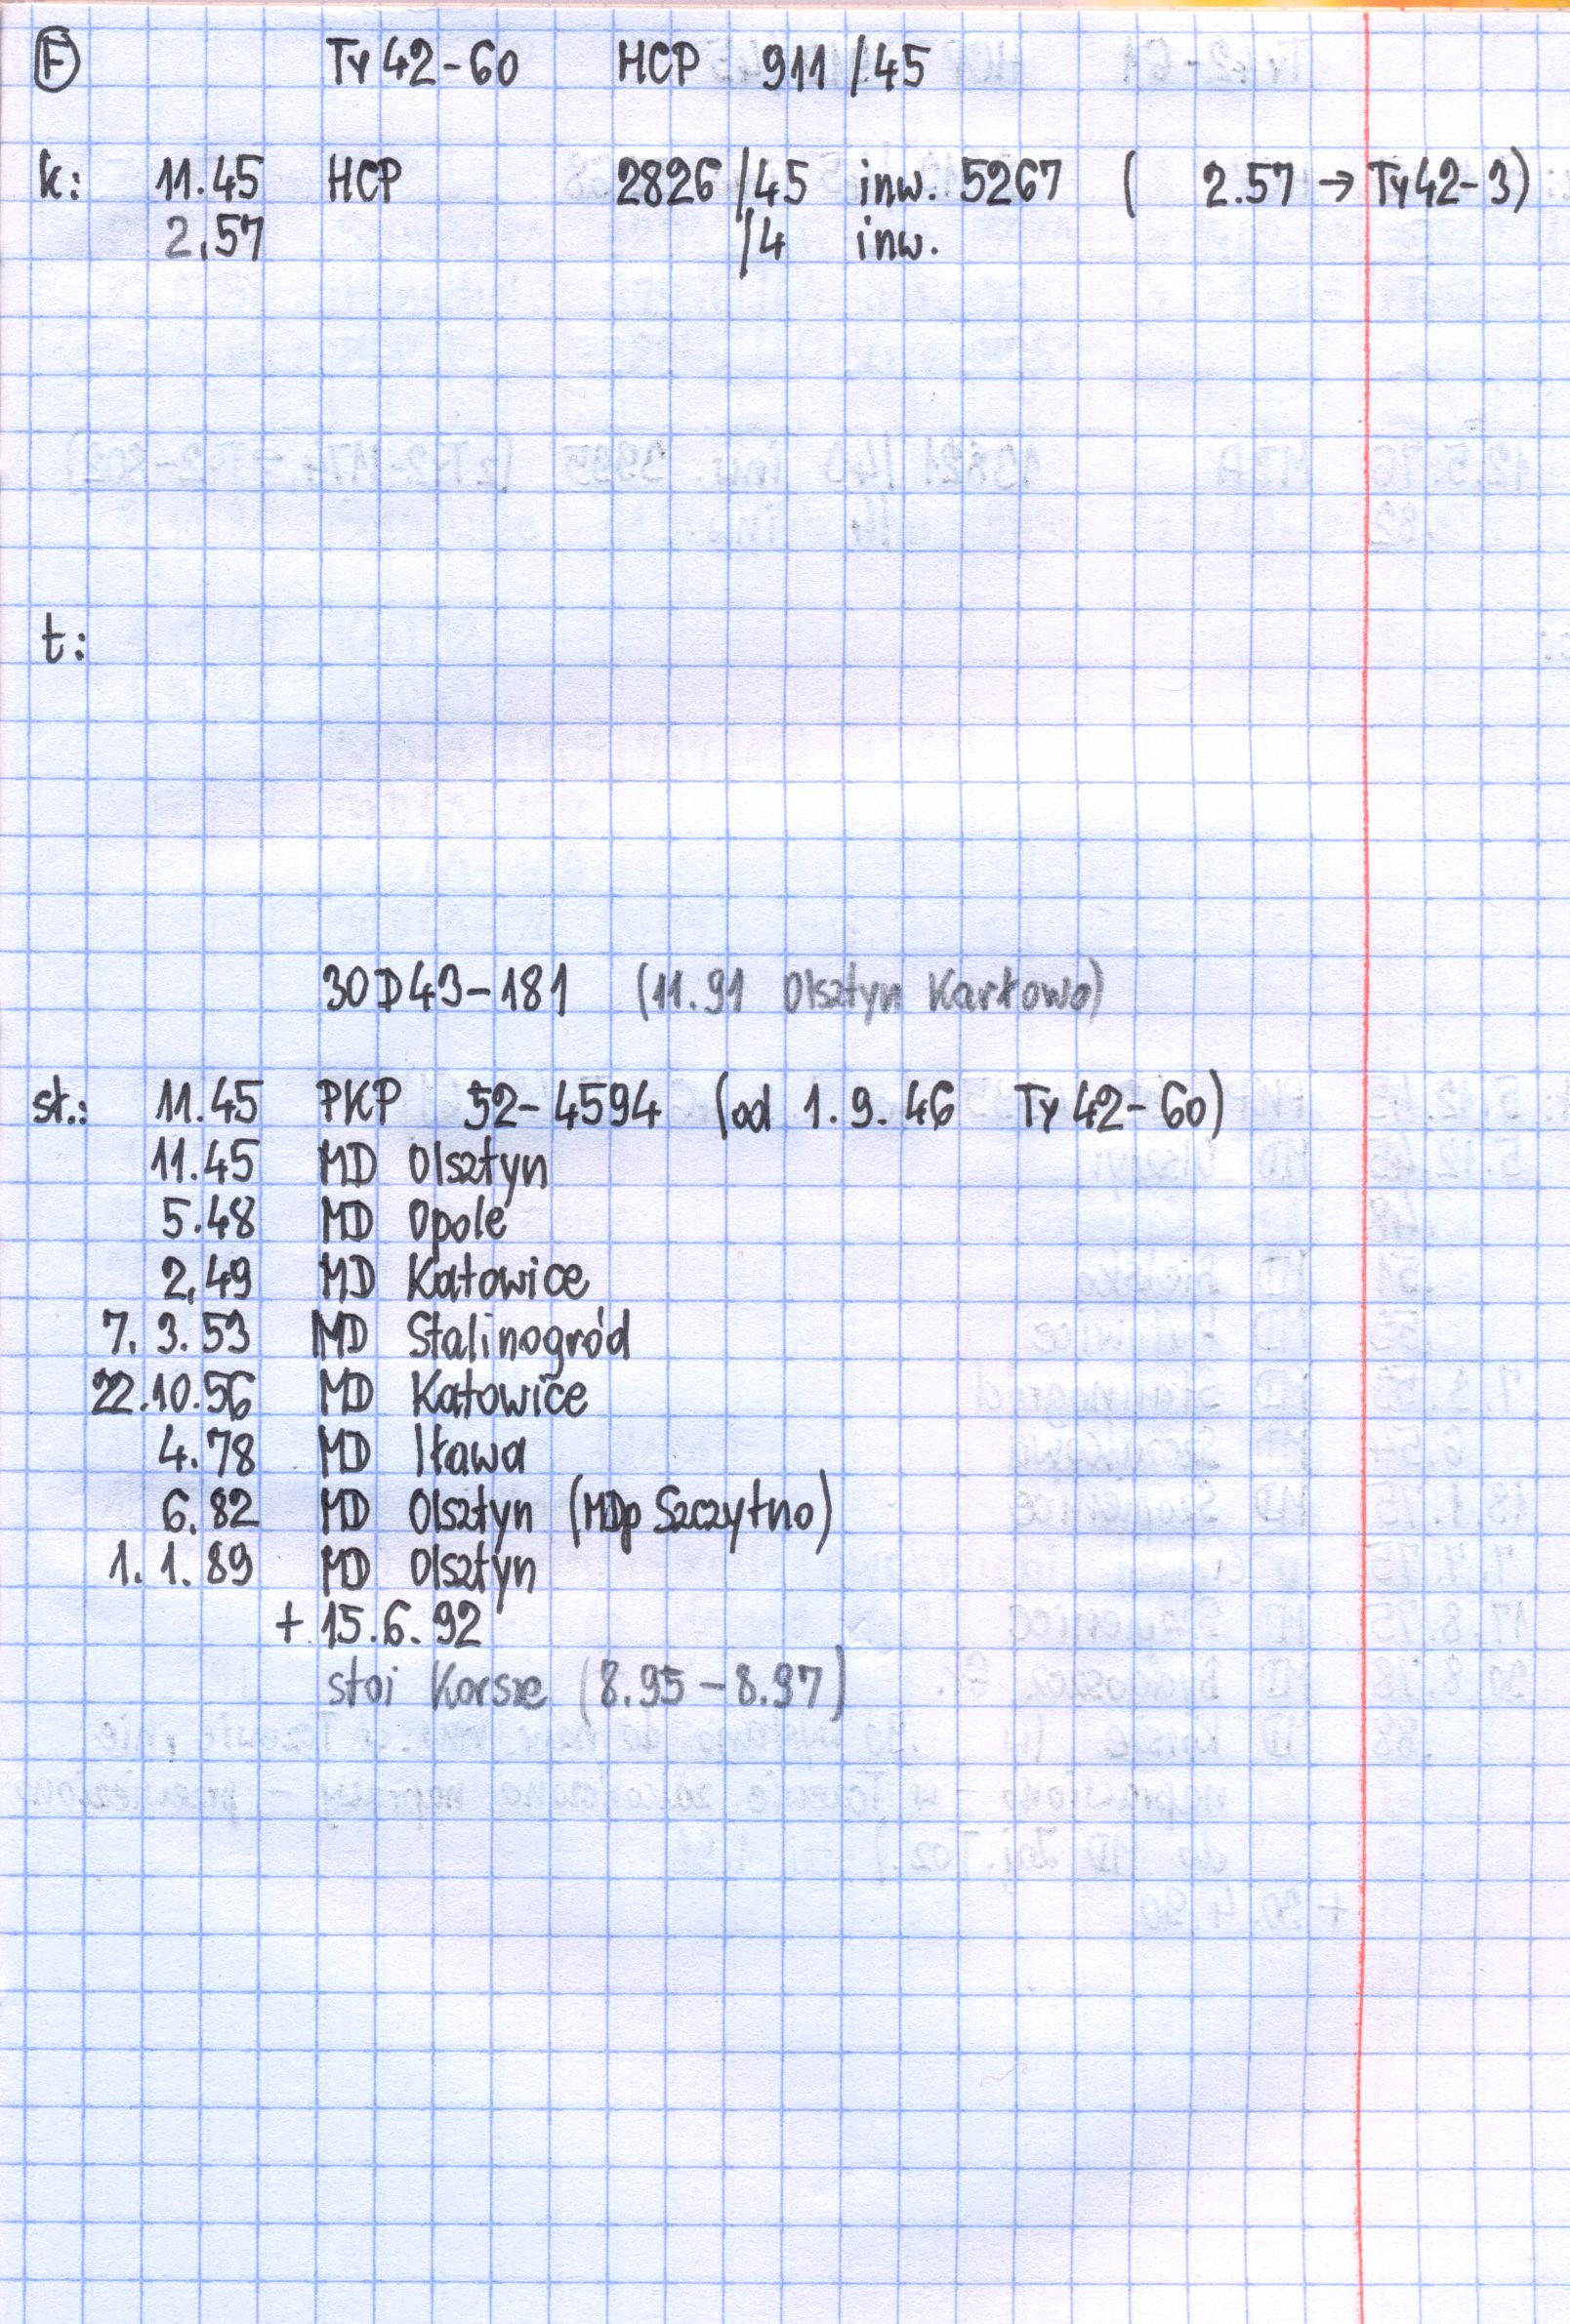 F Ty 42-60 HCP 911/45
k: 11.45 HCP 2826/45 inw. 5267 ( 2.57 → Ty42-3)
2.57 /4 inw.
t:
30D43-181 (11.91 Olsztyn Kartowo)
st.: 11.45 PKP 52-4594 (od 1.9.46 Ty 42-60)
11.45 MD Olsztyn
5.48 MD Opole
2.49 MD Katowice
7.3.53 MD Stalinogród
22.10.56 MD Katowice
4.78 MD Iława
6.82 MD Olsztyn (MDp Szczytno)
1.1.89 MD Olsztyn
+ 15.6.92
stoi Korsze (8.95-8.97)